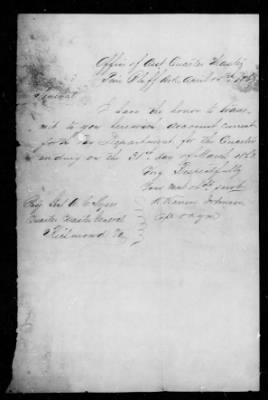 Office of Asst Quarter Master
Pine Bluff Ark April 10th 186
General
I have the honor to trans-
mit to you herewith account current
for the Department for the Quarter
ending on the 31st day of March 186
Very Respectfully
Your most obt servt
Johnson
Brig Genl A. C. Myers
Quarter Master General
Richmond Va
Capt & AQM